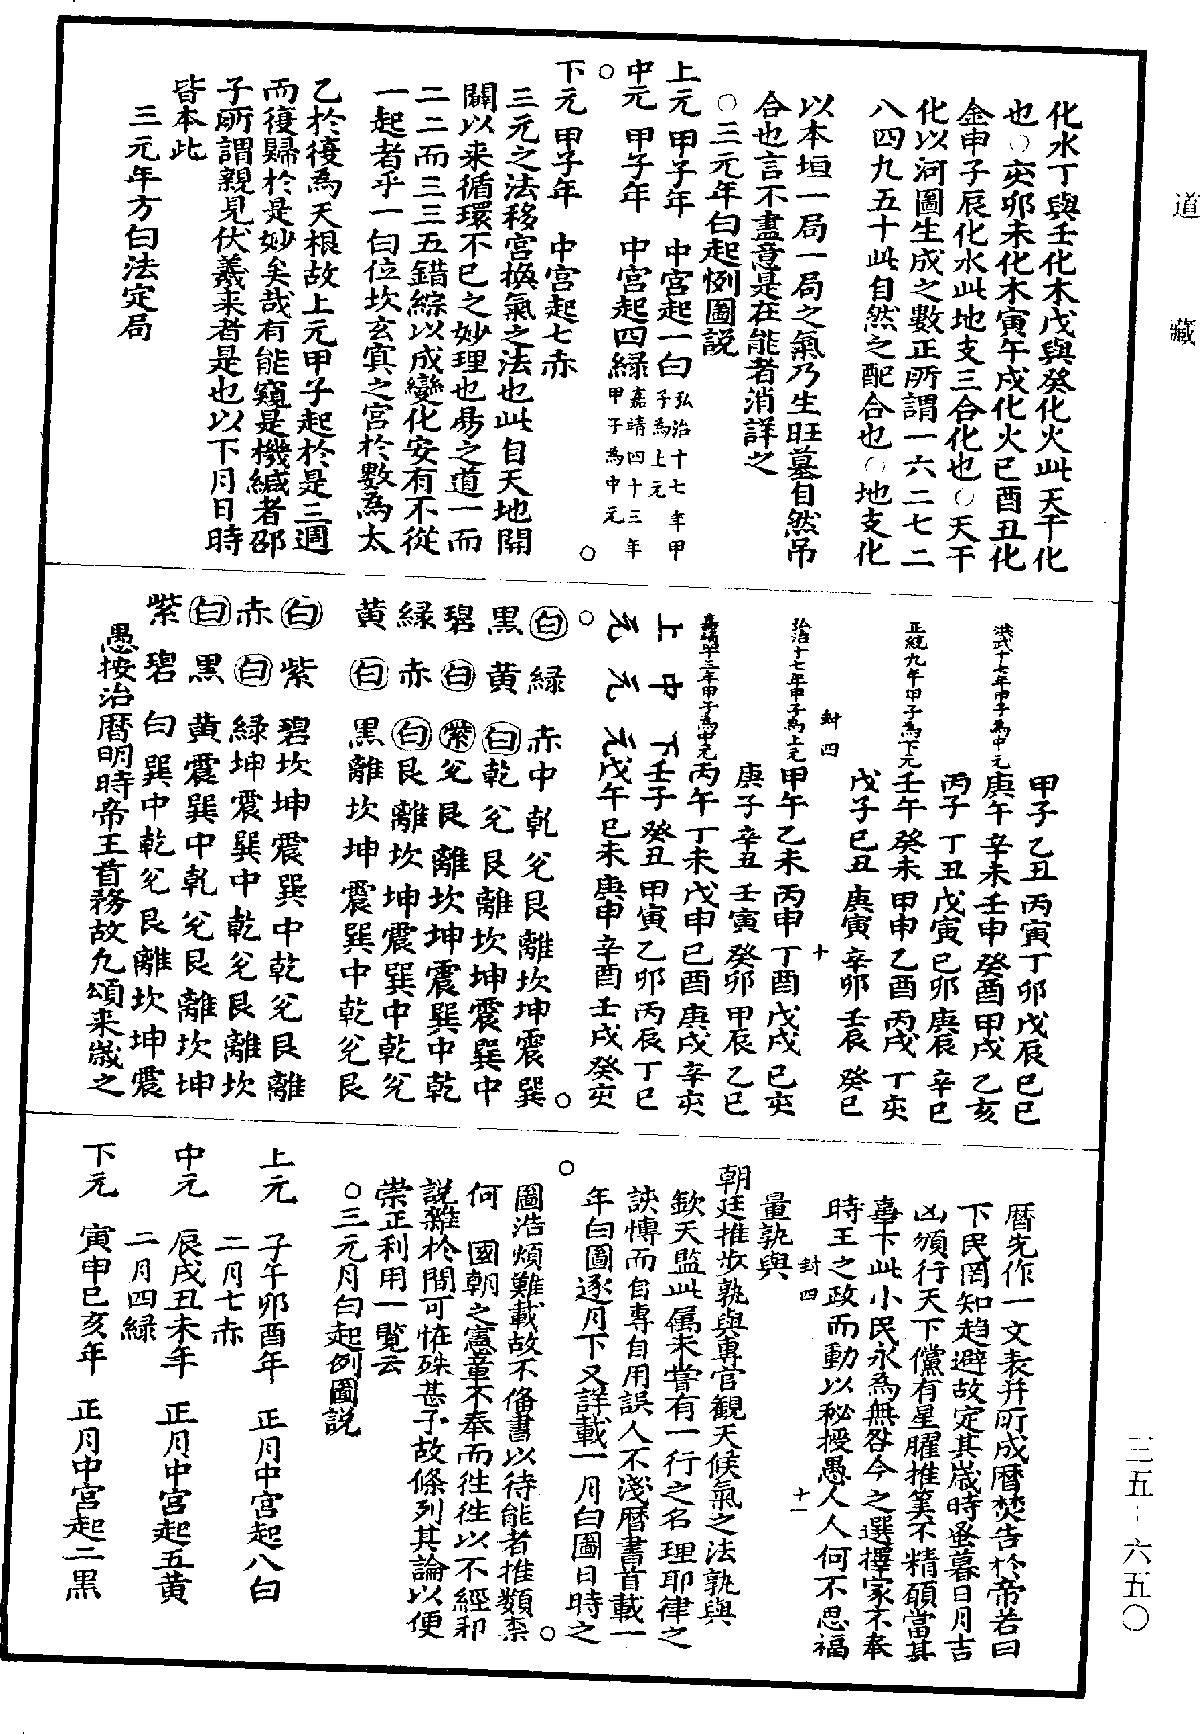 道藏
化水丁與壬化木戊與癸化火此天干化
也○亥卯未化木寅午戌化火巳酉丑化
金申子辰化水此地支三合化也○天干
化以河圖生成之數正所謂一六二七二
八四九五十此自然之配合也○地支化
以本垣一局一局之氣乃生旺墓自然吊
合也言不盡意是在能者消詳之
○三元年白起例圖説
上元 甲子年 中宮起一白 弘治十七年甲子為上元
中元 甲子年 中宮起四緑 嘉靖四十三年甲子為中元
○
下元 甲子年 中宮起七赤
○
三元之法移宮換氣之法也此自天地開
闢以来循環不已之妙理也易之道一而
二二而三三五錯綜以成變化安有不從
一起者乎一白位坎玄冥之宮於數為太
乙於復為天根故上元甲子起於是三週
而復歸於是妙矣哉有能窺是機緘者邵
子所謂親見伏羲来者是也以下月日時
皆本此
三元年方白法定局
甲子乙丑丙寅丁卯戊辰己巳
洪武十七年甲子為中元 庚午辛未壬申癸酉甲戌乙亥
丙子丁丑戊寅己卯庚辰辛巳
正統九年甲子為下元 壬午癸未甲申乙酉丙戌丁亥
戊子己丑庚寅辛卯壬辰癸巳
封四 十
弘治十七年甲子為上元 甲午乙未丙申丁酉戊戌己亥
庚子辛丑壬寅癸卯甲辰乙巳
嘉靖四十三年甲子為中元 丙午丁未戊申己酉庚戌辛亥
上中下 壬子癸丑甲寅乙卯丙辰丁巳
元元元 戊午己未庚申辛酉壬戌癸亥
○
○
白緑赤中乾兌艮離坎坤震巽
黑黄白乾兌艮離坎坤震巽中
碧白紫兌艮離坎坤震巽中乾
緑赤白艮離坎坤震巽中乾兌
黄白黑離坎坤震巽中乾兌艮
白紫碧坎坤震巽中乾兌艮離
赤白緑坤震巽中乾兌艮離坎
白黑黄震巽中乾兌艮離坎坤
紫碧白巽中乾兌艮離坎坤震
愚按治曆明時帝王首務故九頌来歲之
曆先作一文表并所成曆焚告於帝若曰
下民罔知趋避故定其歲時蚤暮日月吉
凶頒行天下儻有星臞推筭不精碩當其
辜下此小民永為無咎今之選擇家不奉
時王之政而動以秘授愚人人何不思福
量孰與
封四 十一
朝廷推歩孰與專官觀天候氣之法孰與
欽天監此属未嘗有一行之名理耶律之
諛博而自專自用誤人不淺曆書首載一
年白圖逐月下又詳載一月白圖日時之
○
圖浩煩難載故不俻書以待能者推類柰
○
何 國朝之憲章不奉而徃徃以不經邪
説雜於間可怪殊甚子故條列其論以便
崇正利用一覧云
○三元月白起例圖説
上元 子午卯酉年 正月中宮起八白
二月七赤
中元 辰戌丑未年 正月中宮起五黄
二月四緑
下元 寅申巳亥年 正月中宮起二黑
三五－六五〇